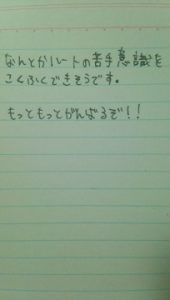 なんとかルートの苦手意識を
こくふくできそうです。
もっともっとがんばるぞ！！